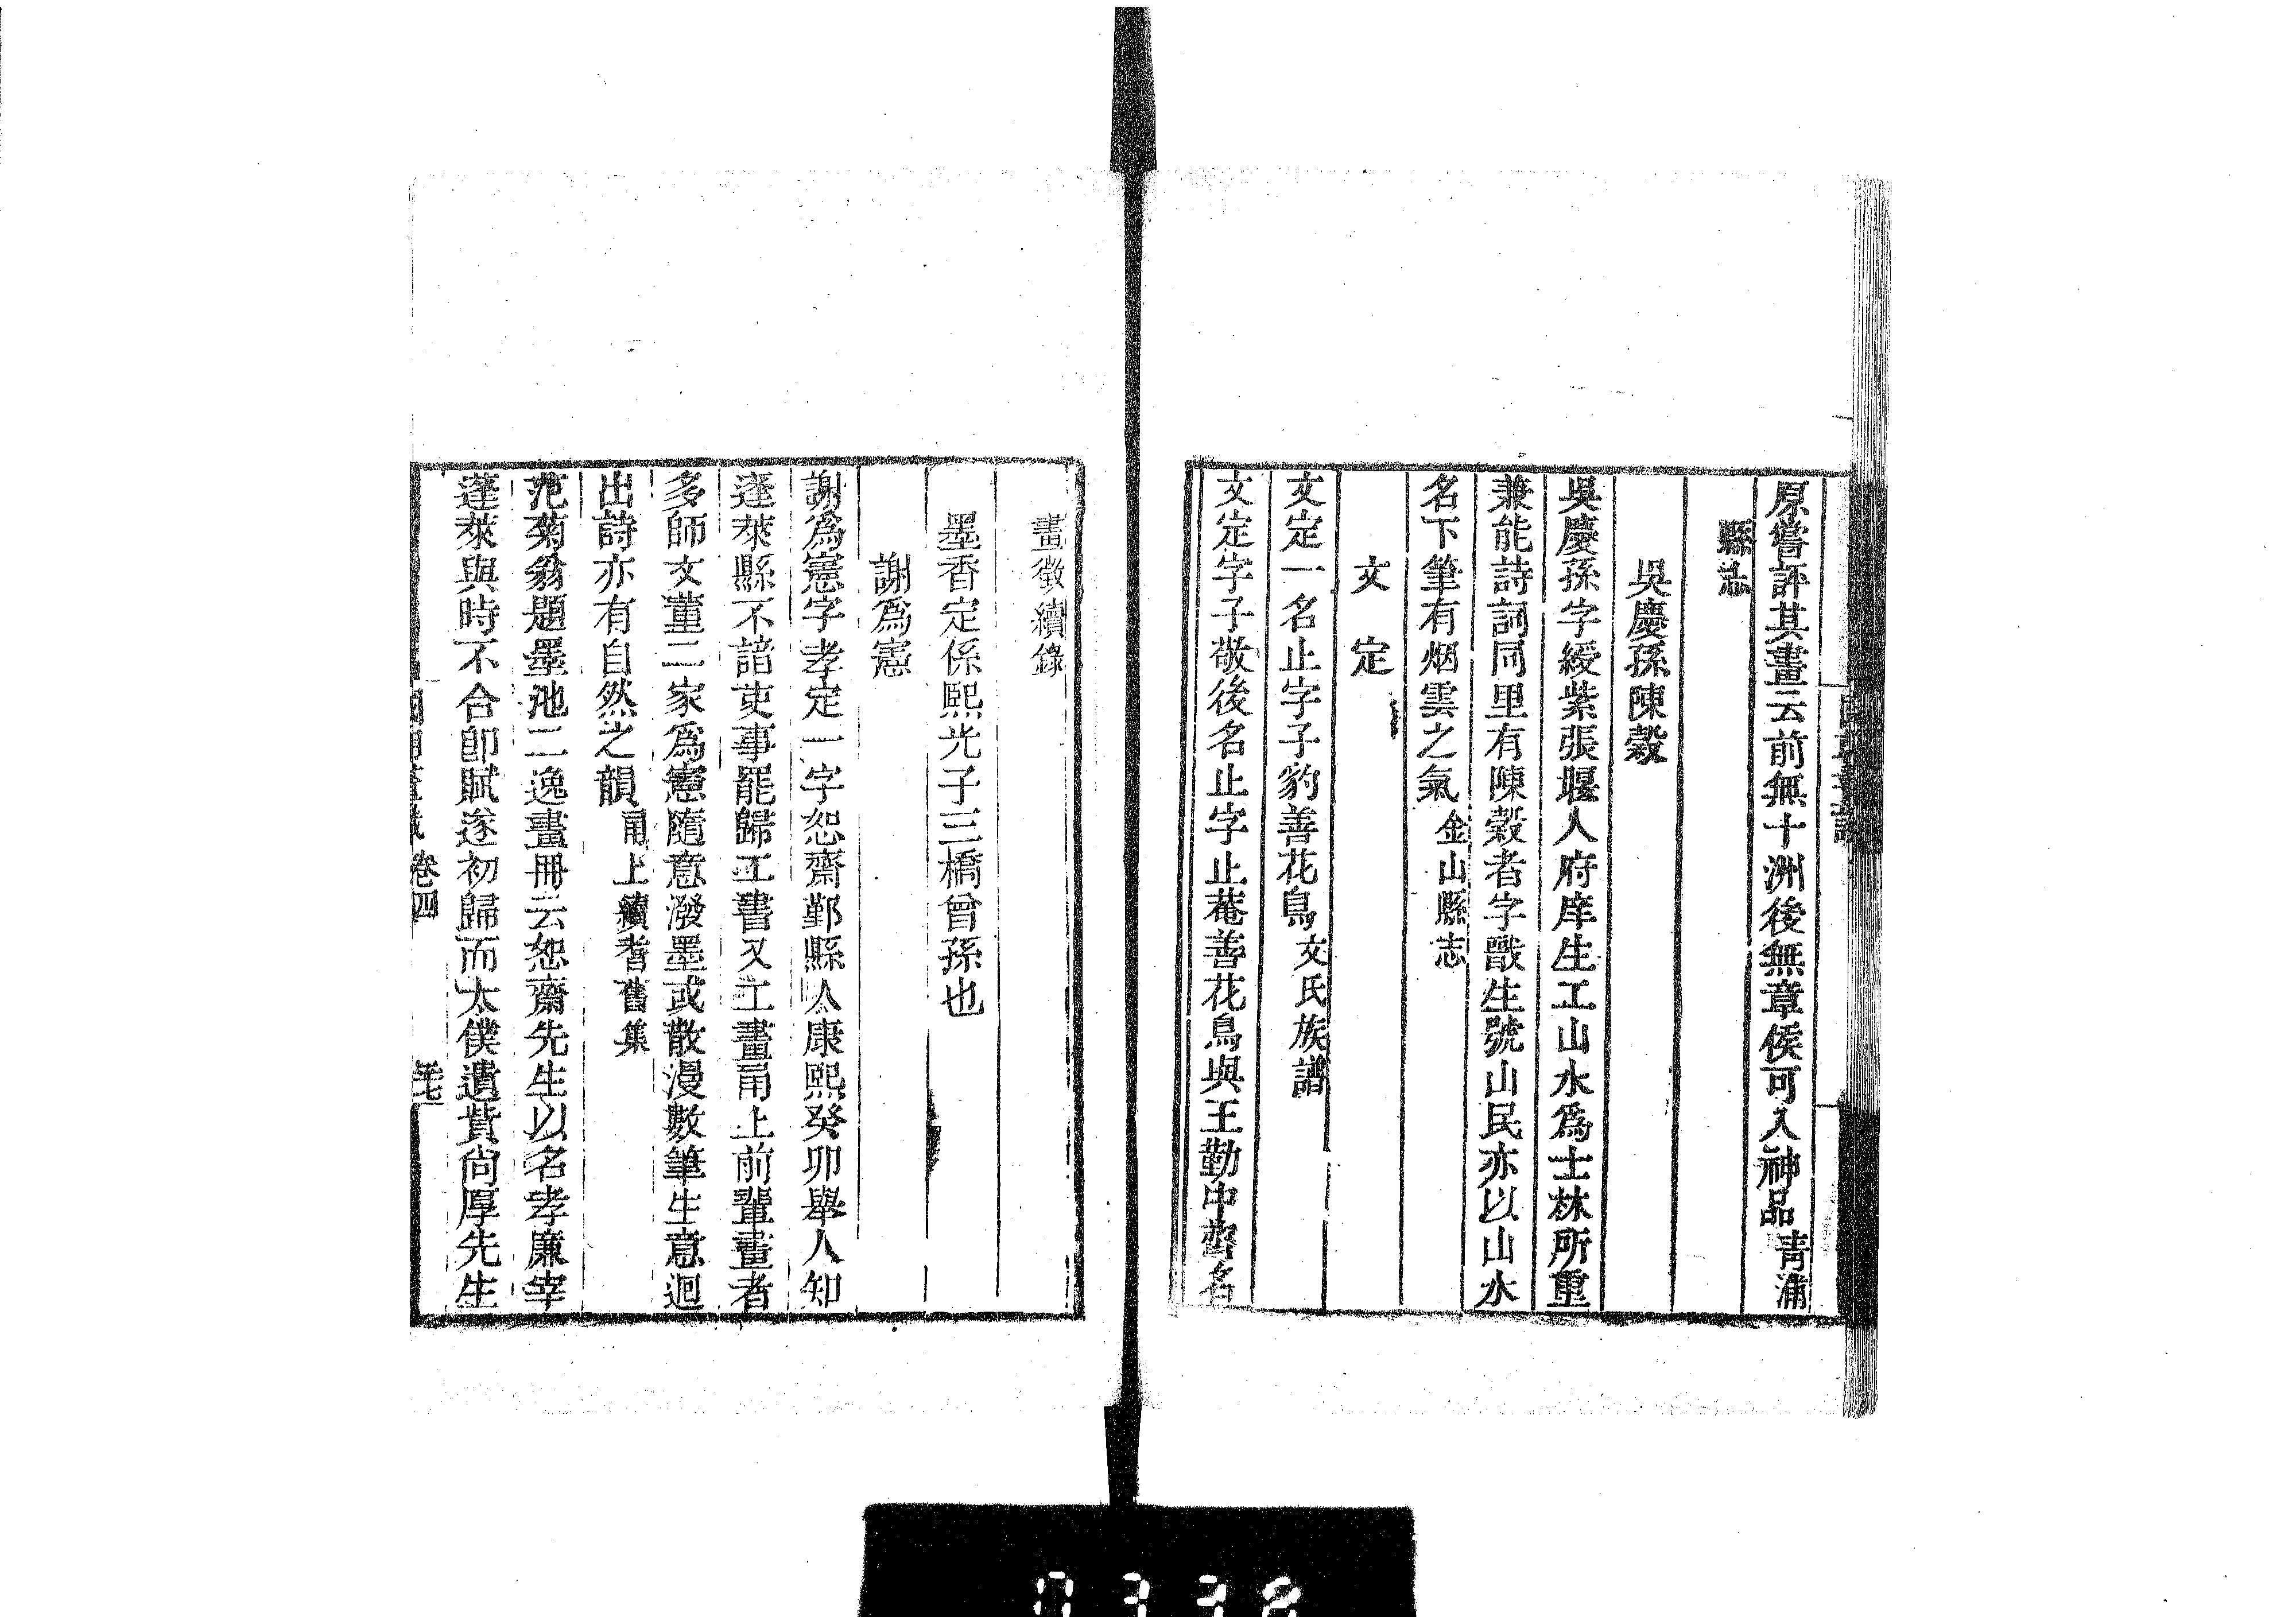 原嘗評其畫云前無十洲後無章侯可入神品青浦
縣志
吳慶孫陳穀
吳慶孫字綬紫張堰人府庠生工山水爲士林所重
兼能詩詞同里有陳穀者字戩生號山民亦以山水
名下筆有烟雲之氣金山縣志
文定
文定一名止字子豹善花鳥文氏族譜
文定字子敬後名止字止菴善花鳥與王勤中齊名
畫徵續錄
墨香定係熙光子三橋曾孫也
謝爲憲
謝爲憲字孝定一字恕齋鄞縣人康熙癸卯舉人知
蓬萊縣不諳吏事罷歸工書又工畫甬上前輩畫者
多師文董二家爲憲隨意潑墨或散漫數筆生意迴
出詩亦有自然之韻甬上續耆舊集
范菊翁題墨池二逸畫冊云恕齋先生以名孝廉宰
蓬萊與時不合卽賦遂初歸而太僕遺貲尙厚先生
卷四
0338